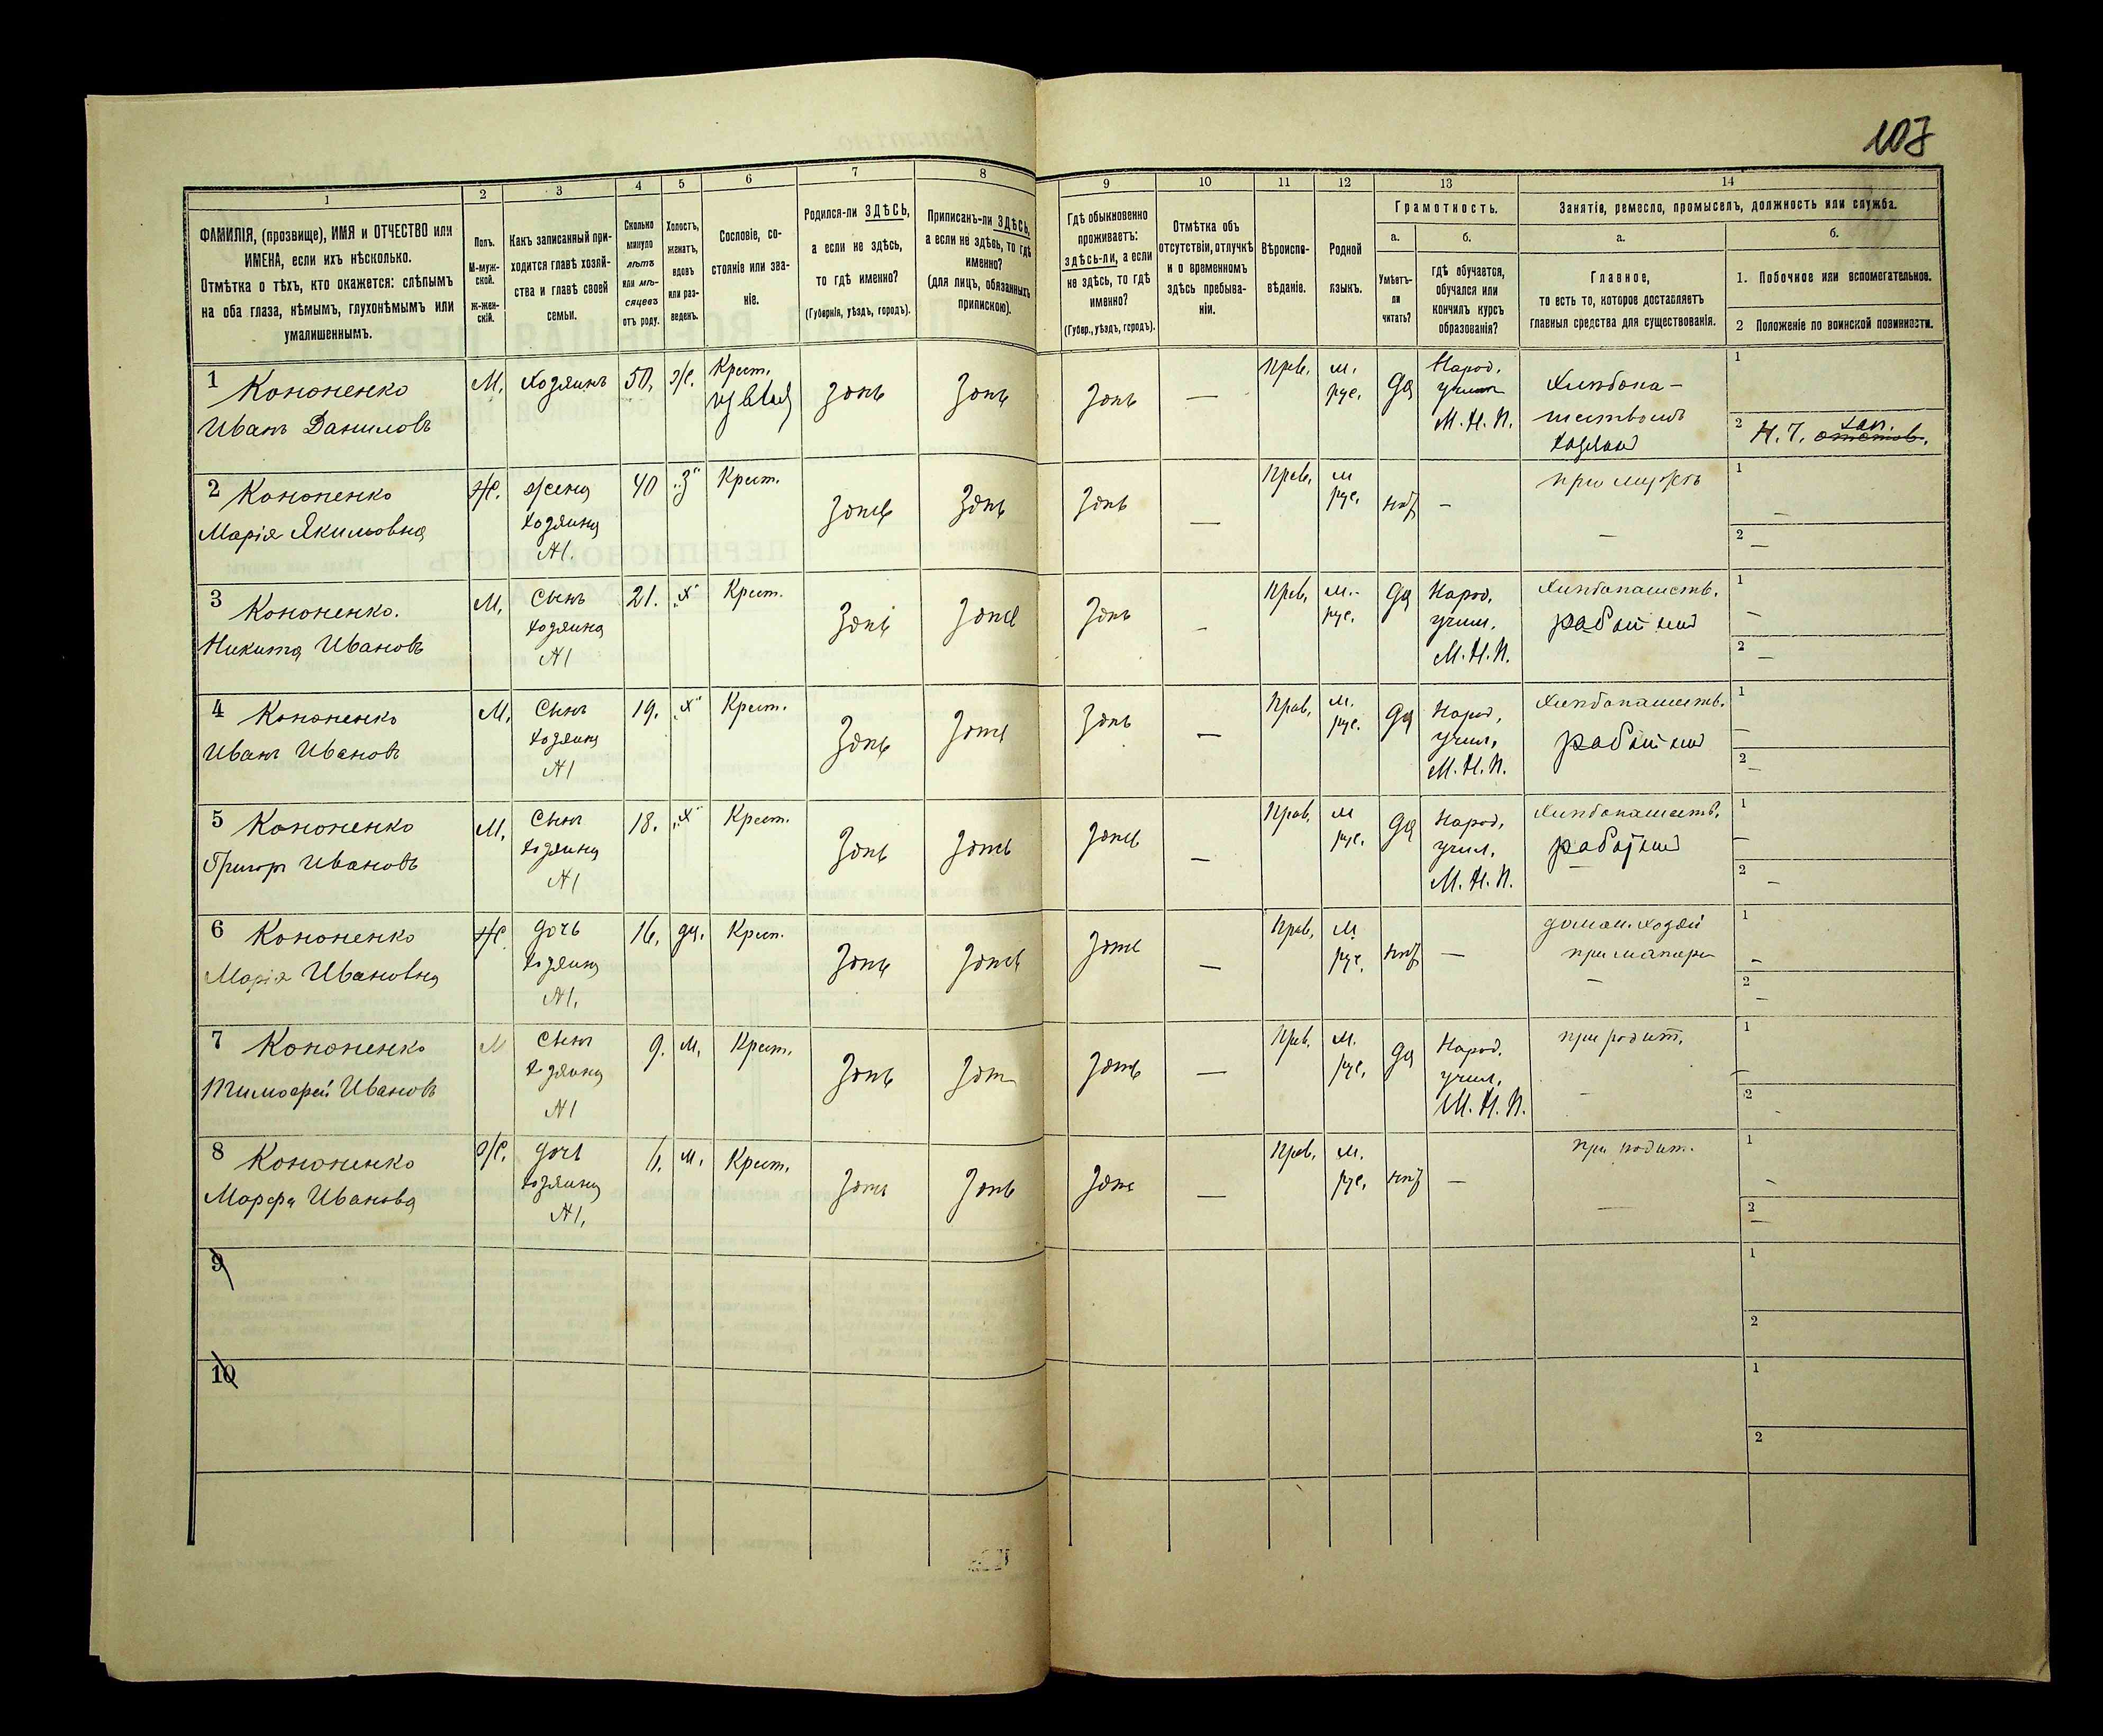 107
1
2
3
4
5
6
7
8
9
10
11
12
13
14
ФАМИЛІЯ, (прозвище), ИМЯ и ОТЧЕСТВО или
ИМЕНА, если ихъ нѣсколько.
Отмѣтка о тѣхъ, кто окажется: слѣпымъ
на оба глаза, нѣмымъ, глухонѣмымъ или
умалишеннымъ.
Полъ.
М-муж-
ской.
Ж-жен-
скій.
Какъ записанный при-
ходится главѣ хозяй-
ства и главѣ своей
семьи.
Сколько
минуло
лѣтъ
или мѣ-
сяцевъ
отъ роду.
Холостъ,
женатъ,
вдовъ
или раз-
веденъ.
Сословіе, со-
стояніе или зва-
ніе.
Родился-ли ЗДѢСЬ,
а если не здѣсь,
то гдѣ именно?
(Губернія, уѣздъ, городъ).
Приписанъ-ли ЗДѢСЬ,
а если не здѣсь, то гдѣ
именно?
(для лицъ, обязанныхъ
припискою).
Гдѣ обыкновенно
проживаетъ:
здѣсь-ли, а если
не здѣсь, то гдѣ
именно?
(Губер., уѣздъ, городъ).
Отмѣтка объ
отсутствіи, отлучкѣ
и о временномъ
здѣсь пребыва-
ніи.
Вѣроиспо-
вѣданіе.
Родной
языкъ.
Грамотность.
а.
Умѣетъ-
ли
читать?
б.
гдѣ обучается,
обучался или
кончилъ курсъ
образованія?
Занятія, ремесло, промыселъ, должность или служба.
а.
Главное,
то есть то, которое доставляетъ
главныя средства для существованія.
б.
1. Побочное или вспомогательное.
2 Положеніе по воинской повинности.
1 Кононенко
Иванъ Даниловъ
М.
Хозяинъ
50.
Ж.
Крест.
здѣсь
здѣсь
здѣсь
—
Прав.
м.
рус.
да
Народ.
учил.
М. Н. П.
Хлѣбопа-
шествомъ
хозяинъ
1
2 Н. Ч.
2 Кононенко
Марія Якимовна
Ж.
жена
хозяина
№1.
40
„З“
Крест.
здѣсь
здѣсь
здѣсь
—
Прав.
м
рус.
нѣт
—
при мужѣ
—
1 —
2 —
3 Кононенко.
Никита Ивановъ
М.
Сынъ
хозяина
№1
21.
„Х“
Крест.
здѣсь
здѣсь
здѣсь
—
Прав.
м.
рус.
да
Народ.
учил.
М. Н. П.
Хлѣбопашеств.
1 —
2 —
4 Кононенко
Иванъ Ивановъ
М.
Сынъ
хозяина
№1
19.
„Х“
Крест.
здѣсь
здѣсь
здѣсь
—
Прав.
м.
рус.
да
Народ.
учил.
М. Н. П.
Хлѣбопашеств.
1 —
2 —
5 Кононенко
Григор Ивановъ
М.
Сынъ
хозяина
№1
18.
„Х“
Крест.
здѣсь
здѣсь
здѣсь
—
Прав.
м
рус.
да
Народ.
учил.
М. Н. П.
Хлѣбопашеств.
1 —
2 —
6 Кононенко
Марія Ивановна
Ж.
дочь
хозяина
№1.
16.
Крест.
здѣсь
здѣсь
здѣсь
—
Прав.
м
рус.
нѣт
—
при матери
—
1 —
2 —
7 Кононенко
Тимофей Ивановъ
М
Сынъ
хозяина
№1
9.
м.
Крест.
здѣсь
здѣсь
здѣсь
—
Прав.
м.
рус.
да
Народ.
учил.
М. Н. П.
при родит.
—
1 —
2 —
8 Кононенко
Марфа Иванова
Ж.
дочь
хозяина
№1.
м.
Крест.
здѣсь
здѣсь
здѣсь
—
Прав.
м.
рус.
нѣт
—
при родит.
—
1 —
2 —
9
1
2
10
1
2